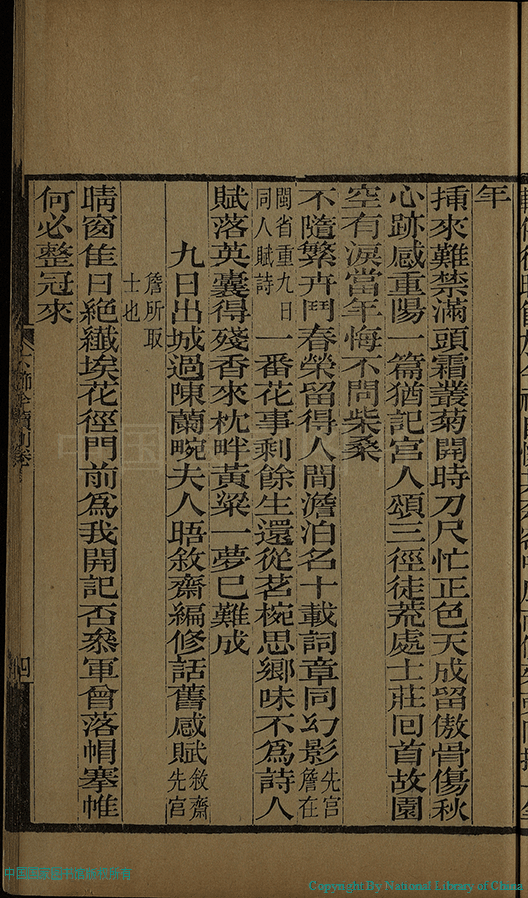 年
挿來難禁滿頭霜叢菊開時刀尺忙正色天成留傲骨傷秋
心跡感重陽一篇猶記宫人頌三徑徒荒處士莊回首故園
空有淚當年悔不問柴桑
不隨繁卉鬥春榮留得人間澹泊名十載詞章同幻影先宫詹在
閩省重九日同人賦詩一番花事剩餘生還從茗椀思鄉味不爲詩人
賦落英囊得殘香來枕畔黃粱一夢已難成
九日出城過陳蘭畹夫人晤敘齋編修話舊感賦敘齋先宫
詹所取士也
晴窗佳日絶纖埃花徑門前爲我開記否叅軍曾落帽搴帷
何必整冠來
四
中国国家图书馆版权所有
Copyright By National Library of China